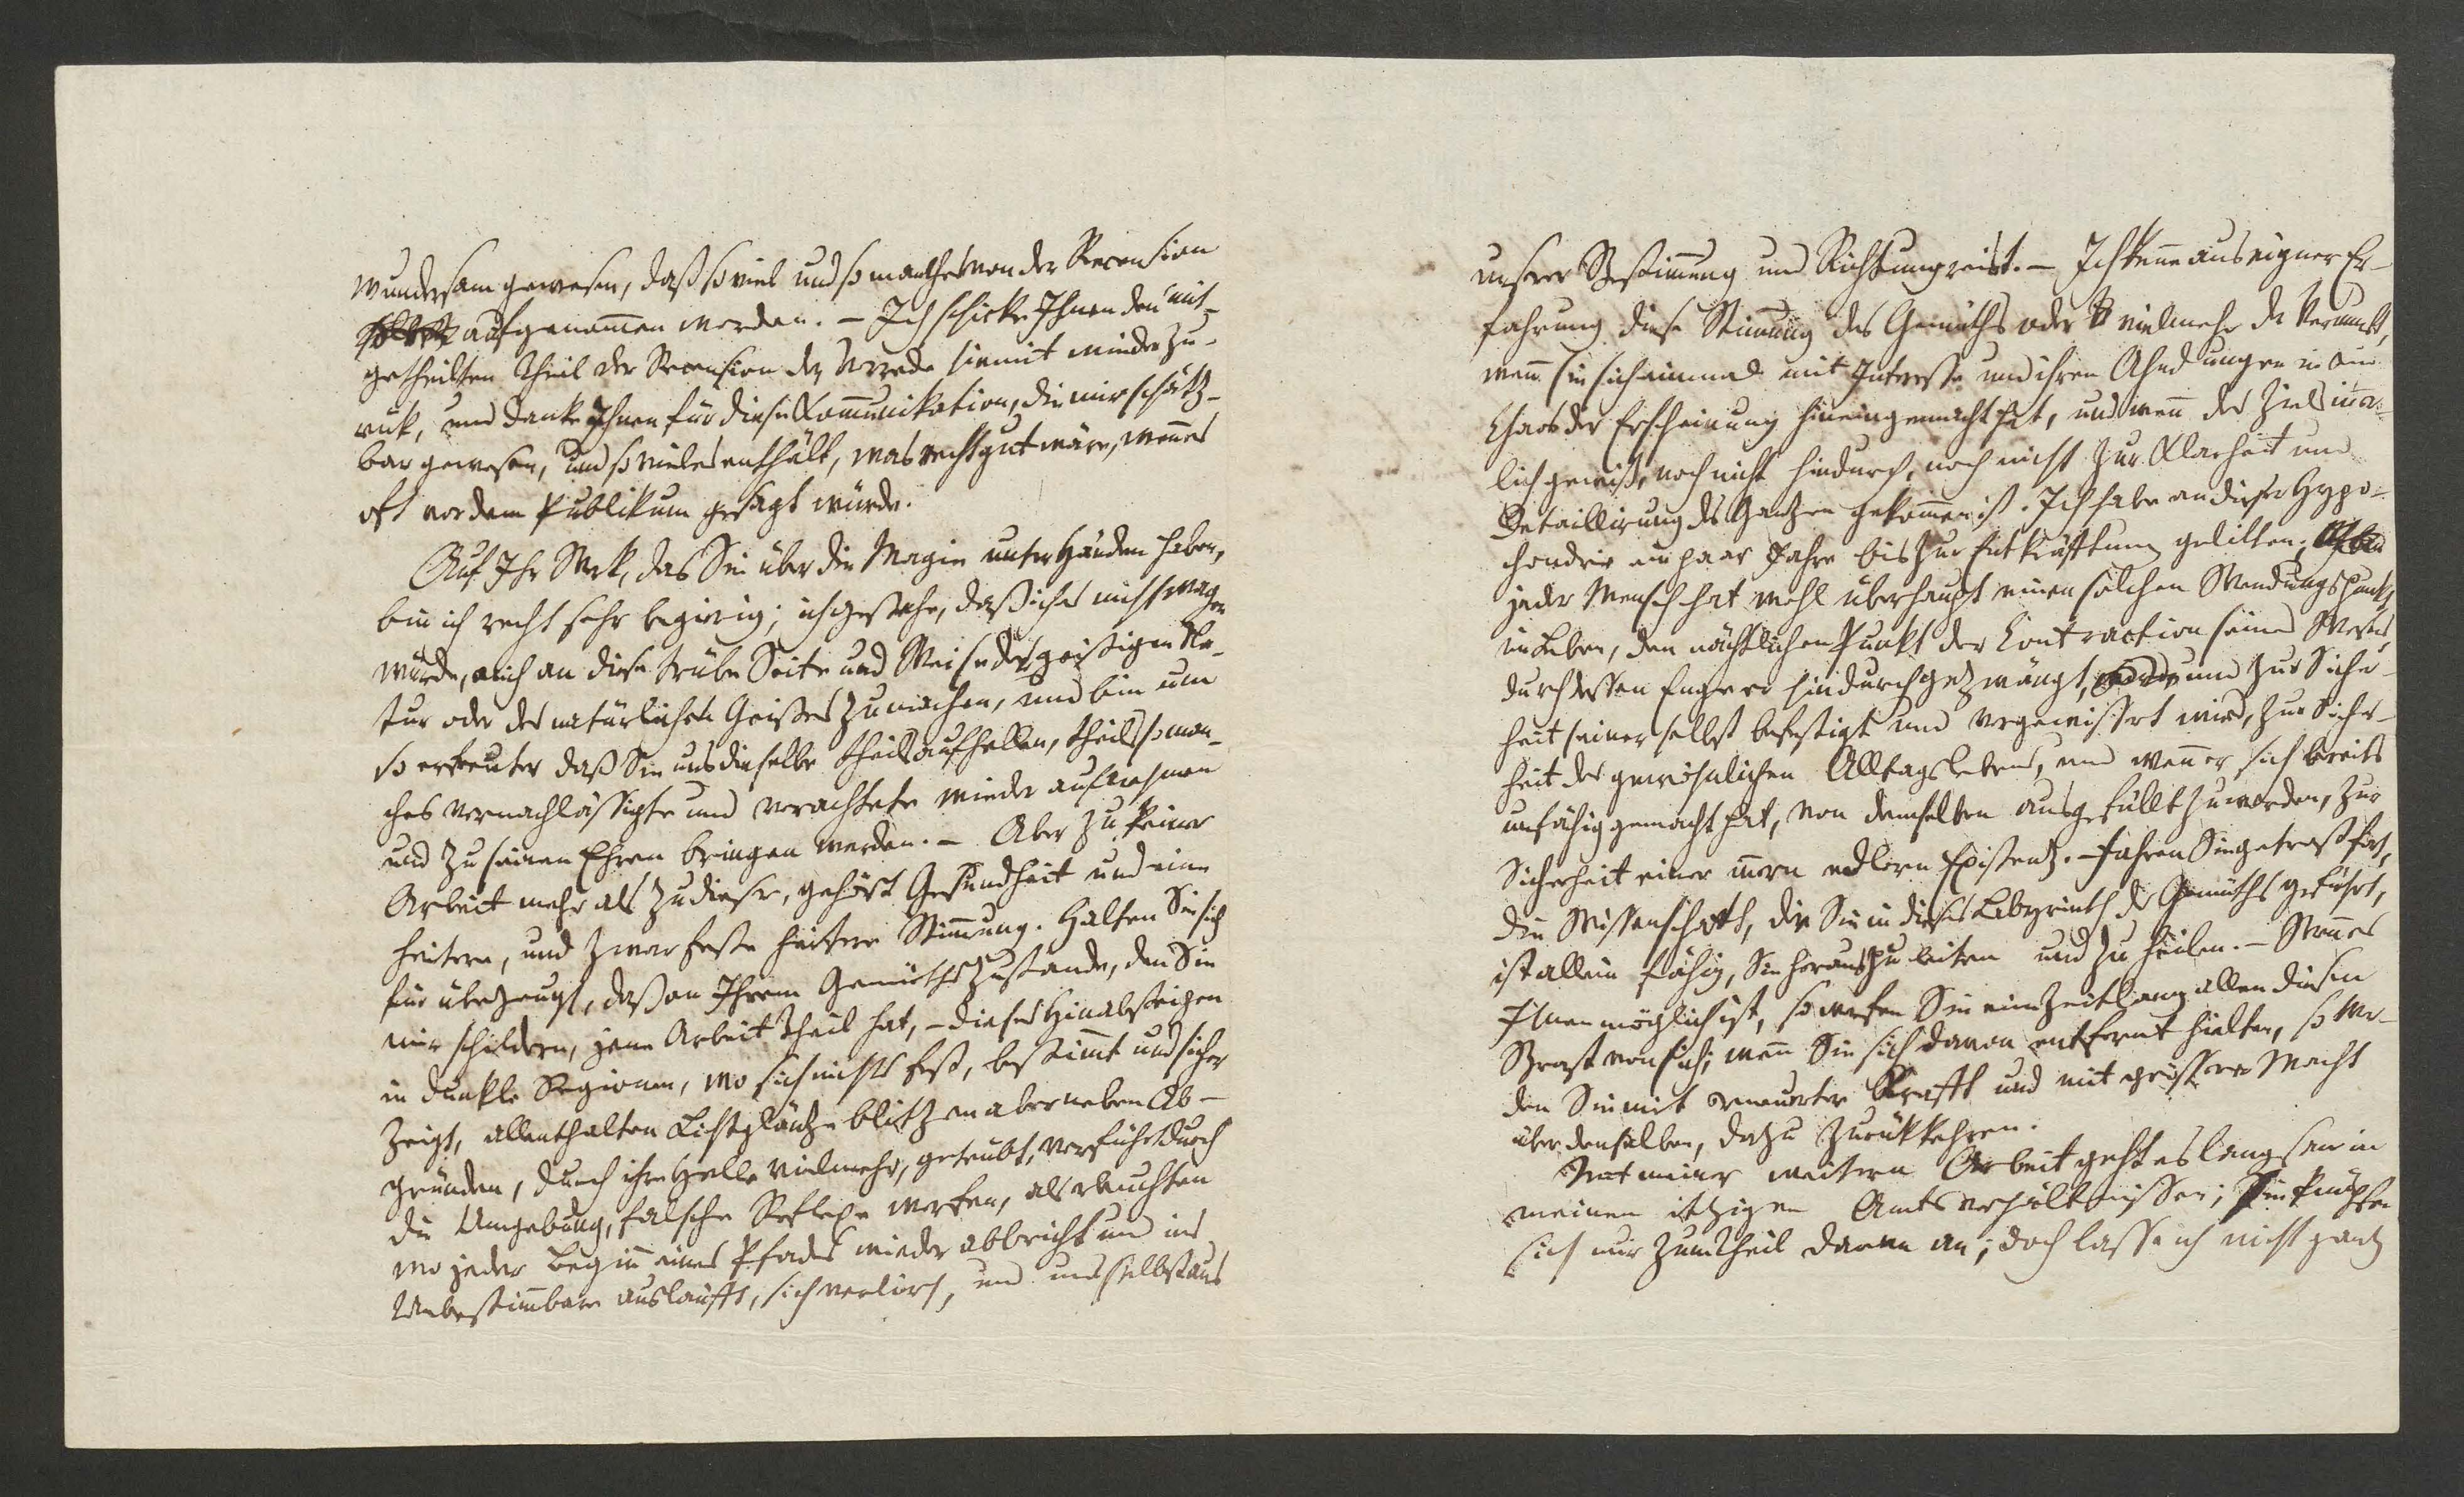 wundersam gewesen, daß so viel und so manches von der Recension
aufgenom̄en worden. – Ich schicke Ihnen den mit-
getheilten Theil der Recension der Vorrede hiemit wieder zu-
rük, und danke Ihnen für diese Kom̄unikation, die mir schätz-
bar gewesen, und so vieles enthält, was recht gut wäre, wenn es
oft vor dem Publikum gesagt würde.
Auf Ihr Werk, das Sie über die Magie unter Händen haben,
bin ich recht sehr begierig; ich gestehe, daß ich es nicht wagen
würde, mich an diese trübe Seite und Weise der geistigen Na-
tur oder des natürlichen Geistes zu machen, und bin um
so erfreuter daß Sie uns dieselbe theils aufhellen, theils so man-
ches vernachlässigte und verachtete wieder aufnehmen
und zu seinen Ehren bringen werden. – Aber zu keiner
Arbeit mehr als zu dieser, gehört Gesundheit und eine
heitere, und zwar feste heitere Stim̄ung. Halten Sie sich
für überzeugt, daß an Ihrem Gemüthszustande, den Sie
mir schildern, jene Arbeit Theil hat, – dieses Hinabsteigen
in dunkle Regionen, wo sich nichts fest, bestim̄t und sicher
zeigt, allenthalben Lichtglänze blitzen aber neben Ab-
gründen, durch ihre Helle vielmehr, getrübt, verführt durch
die Umgebung, falsche Reflexe werfen, als erleuchten
wo jeder Begin̄ eines Pfades wieder abbricht und ins
Unbestim̄bare ausläufft, sich verliert, und uns selbst aus
unserer Bestim̄ung und Richtung reißt. – Ich kenne aus eigner Er-
fahrung diese Stim̄ung des Gemüths oder vielmehr der Vernunft,
wen̄ sie sich einmal mit Interesse und ihren Ahndungen in ein
Chaos der Erscheinung hineingemacht hat, und wen̄ des Ziels in̄er-
lich gewiß, noch nicht hindurch, noch nicht zur Klarheit und
Detaillirung des Ganzen gekom̄en ist. Ich habe an dieser Hypo-
chondrie ein paar Jahre bis zur Entkräfftung gelitten;
jeder Mensch hat wohl überhaupt einen solchen Wendungspunkt
im Leben, den nächtlichen Punkt der Contraction seines Wesens
durch dessen Enge er hindurchgezwängt, und zur Sicher-
heit seiner selbst befestigt und vergewissert wird, zur Sicher-
heit des gewöhnlichen Alltagslebens, und wen̄ er sich bereits
unfähig gemacht hat, von demselben ausgefüllt zu werden, zur
Sicherheit einer in̄ern edlern Existenz. – Fahren Sie getrost fort,
die Wissenschaft, die Sie in dieses Labyrinth des Gemüths geführt,
ist allein fähig, Sie herauszuleiten und zu heilen. – Wen̄ es
Ihnen möglich ist, so werfen Sie eine Zeitlang allen diesen
Brast von sich; wen̄ Sie sich davon entfernt hielten, so wer-
den Sie mit erneuerter Krafft und mit grösserer Macht
über denselben, dazu zurükkehren.
Mit meiner weitern Arbeit geht es langsam in
meinen itzigen Amtsverhältnissen; sie knüpfen
sich nur zum Theil daran an; doch lasse ich nicht ganz